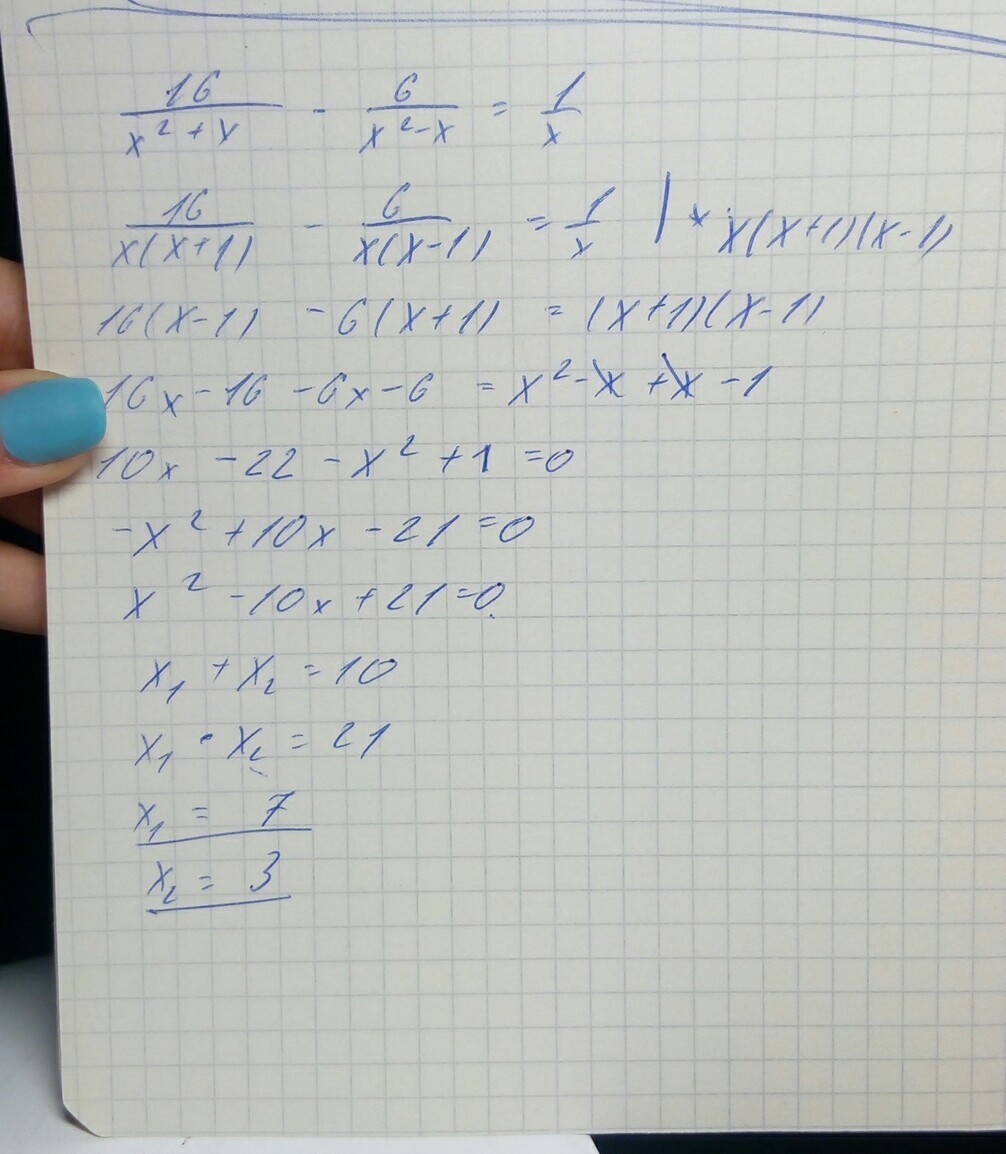 16/(x²+x) - 6/(x²-x) = 1/x
16/(x(x+1)) - 6/(x(x-1)) = 1/x | * x(x+1)(x-1)
16(x-1) - 6(x+1) = (x+1)(x-1)
16x - 16 - 6x - 6 = x² - x + x - 1
10x - 22 - x² + 1 = 0
-x² + 10x - 21 = 0
x² - 10x + 21 = 0
x₁ + x₂ = 10
x₁ · x₂ = 21
x₁ = 7
x₂ = 3